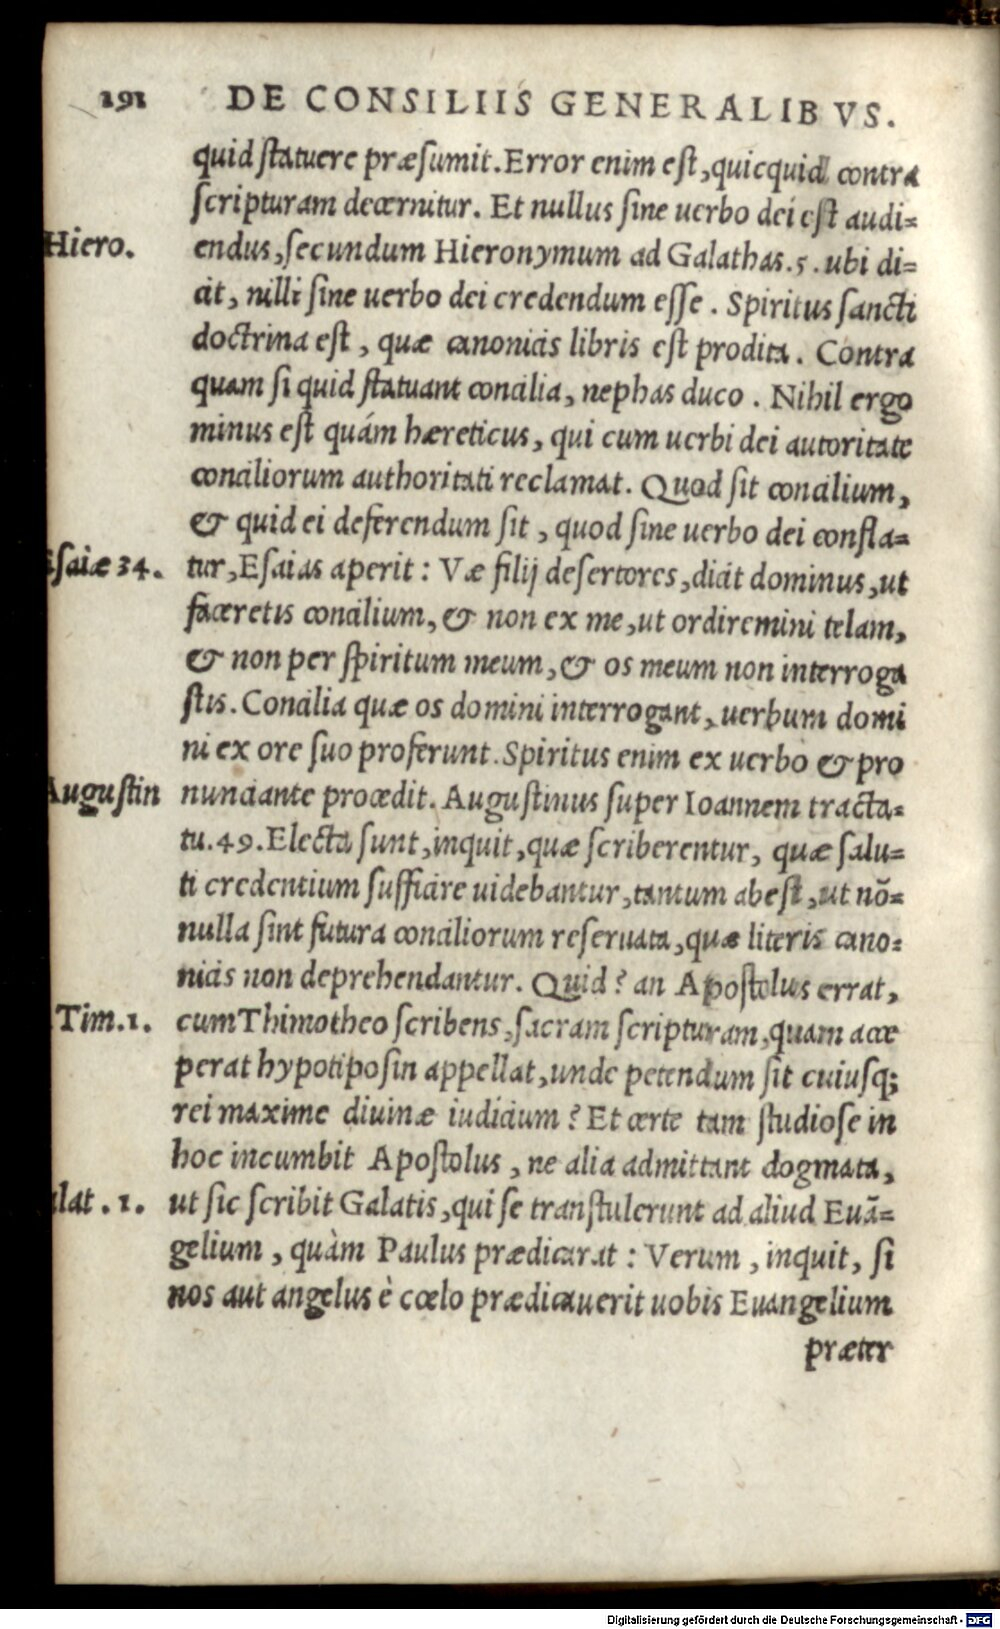 191 DE CONSILIIS GENERALIBVS.
quid statuere præsumit. Error enim est, quicquid contra
scripturam decernitur. Et nullus sine uerbo dei est audi=
Hiero. endus, secundum Hieronymum ad Galathas. 5. ubi di=
cit, nilli sine uerbo dei credendum esse. Spiritus sancti
doctrina est, quæ canonicis libris est prodita. Contra
quam si quid statuant concilia, nephas duco. Nihil ergo
minus est quám hæreticus, qui cum uerbi dei autoritate
conciliorum authoritati reclamat. Quod sit concilium,
& quid ei deferendum sit, quod sine uerbo dei confla=
saiæ 34. tur, Esaias aperit: Væ filij desertores, dicit dominus, ut
faceretis concilium, & non ex me, ut ordiremini telam,
& non per spiritum meum, & os meum non interroga
stis. Concilia quæ os domini interrogant, uerbum domi
ni ex ore suo proferunt. Spiritus enim ex uerbo & pro
Augustin nunciante procedit. Augustinus super Ioannem tracta=
tu. 49. Electa sunt, inquit, quæ scriberentur, quæ salu=
ti credentium sufficire uidebantur, tantum abest, ut nõ=
nulla sint futura conciliorum reseruata, quæ literis cano=
nicis non deprehendantur. Quid? an Apostolus errat,
Tim. 1. cum Thimotheo scribens, sacram scripturam, quam acce
perat hypotiposin appellat, unde petendum sit cuiusq;
rei maxime diuinæ iudicium? Et certe tam studiose in
hoc incumbit Apostolus, ne alia admittant dogmata,
lat. 1. ut sic scribit Galatis, qui se transtulerunt ad aliud Euã=
gelium, quàm Paulus prædicarat: Verum, inquit, si
nos aut angelus è cœlo prædicauerit uobis Euangelium
præter
Digitalisierung gefördert durch die Deutsche Forschungsgemeinschaft - DFG